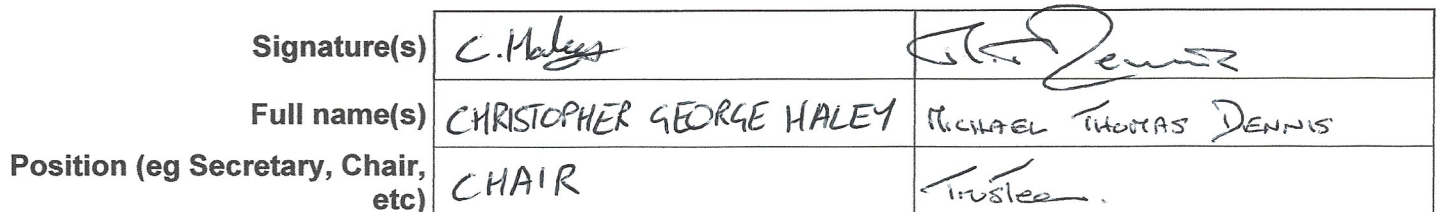 Signature(s) C. Haley
Full name(s) CHRISTOPHER GEORGE HALEY MICHAEL THOMAS DENNIS
Position (eg Secretary, Chair, etc) CHAIR Trustee.